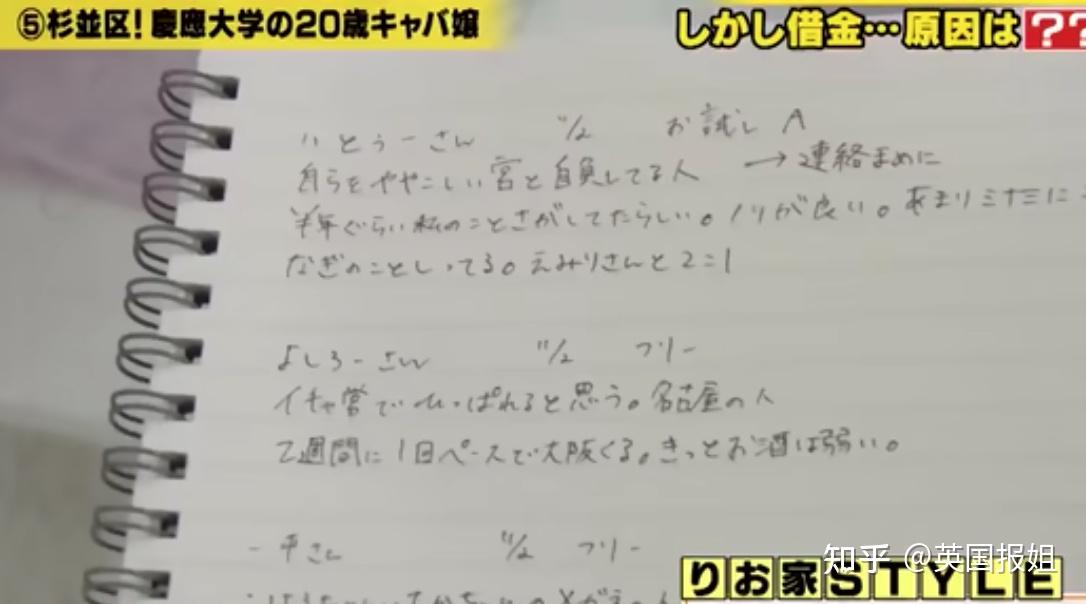 ⑤杉並区!慶應大学の20歳キャバ嬢
しかし借金…原因は??
いとうーさん 11/2 お試し A
自らをややこしい客と自負してる人 →連絡まめに
半年ぐらい私のことさがしてたらしい。ノリが良い。あまりミナミに
なぎのことしってる。えみりさんと2:1
よしろーさん 11/2 フリー
イチャ営でひっぱれると思う。名古屋の人
2週間に1日ペースで大阪くる。きっとお酒は弱い。
平さん 11/2 フリー
知乎 @英国报姐
りお家STYLE